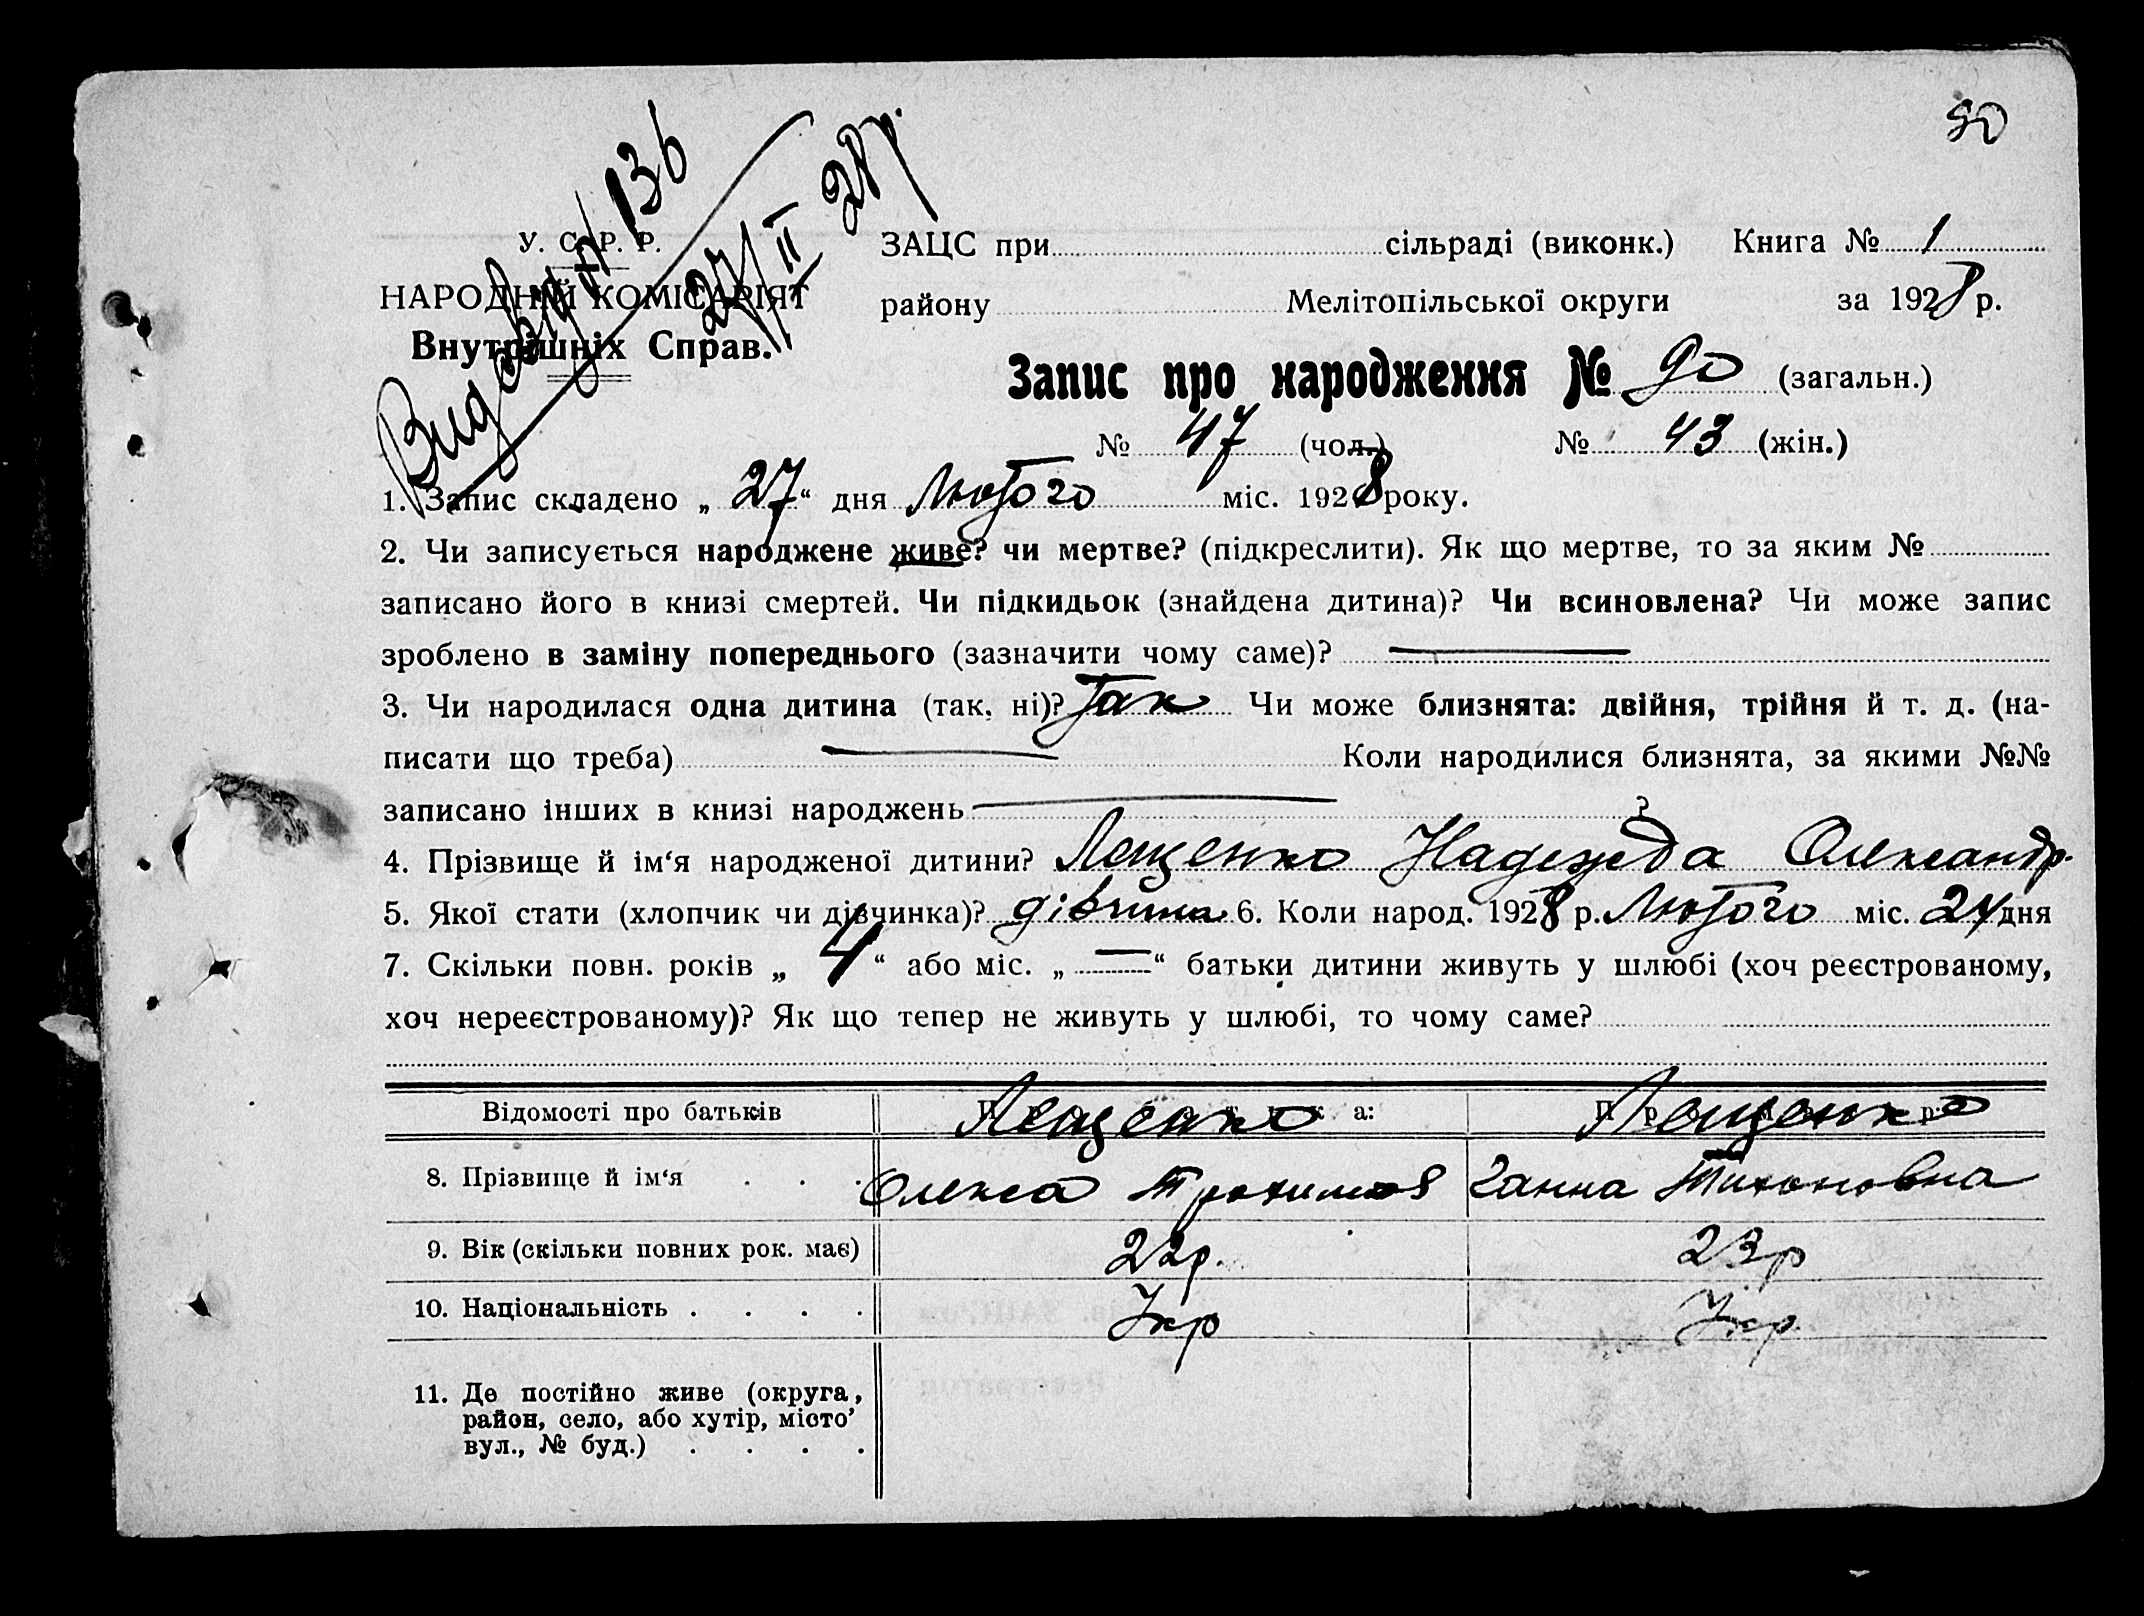 50
Видав від № 136
27/II 28 р.
У. С. Р. Р.
НАРОДНІЙ КОМІСАРІЯТ
Внутрішніх Справ.
ЗАЦС при сільраді (виконк.) Книга № 1
району Мелітопільської округи за 1928 р.
Запис про народження № 90 (загальн.)
№ 47 (чол.) № 43 (жін.)
1. Запис складено „ 27 “ дня Лютого міс. 1928 року.
2. Чи записується народжене живе? чи мертве? (підкреслити). Як що мертве, то за яким №
записано його в книзі смертей. Чи підкидьок (знайдена дитина)? Чи всиновлена? Чи може запис
зроблено в заміну попереднього (зазначити чому саме)? —
3. Чи народилася одна дитина (так, ні)? Так Чи може близнята: двійня, трійня й т. д. (на-
писати що треба) — Коли народилися близнята, за якими №№
записано інших в книзі народжень — ?
4. Прізвище й ім‘я народженої дитини? Лещенко Надежда Олександр.
5. Якої стати (хлопчик чи дівчинка)? дівчина 6. Коли народ. 1928 р. Лютого міс. 24 дня
7. Скільки повн. років „ 4 “ або міс. „ — “ батьки дитини живуть у шлюбі (хоч реєстрованому,
хоч нереєстрованому)? Як що тепер не живуть у шлюбі, то чому саме?
Відомості про батьків Про батька: Лещенко Про матір: Лещенко
8. Прізвище й ім‘я . . . Олекса Трохимов Ганна Тихоновна
9. Вік (скільки повних рок. має) 22р. 23р
10. Національність . . . . Укр Укр.
11. Де постійно живе (округа,
район, село, або хутір, місто’
вул., № буд.) . . . .